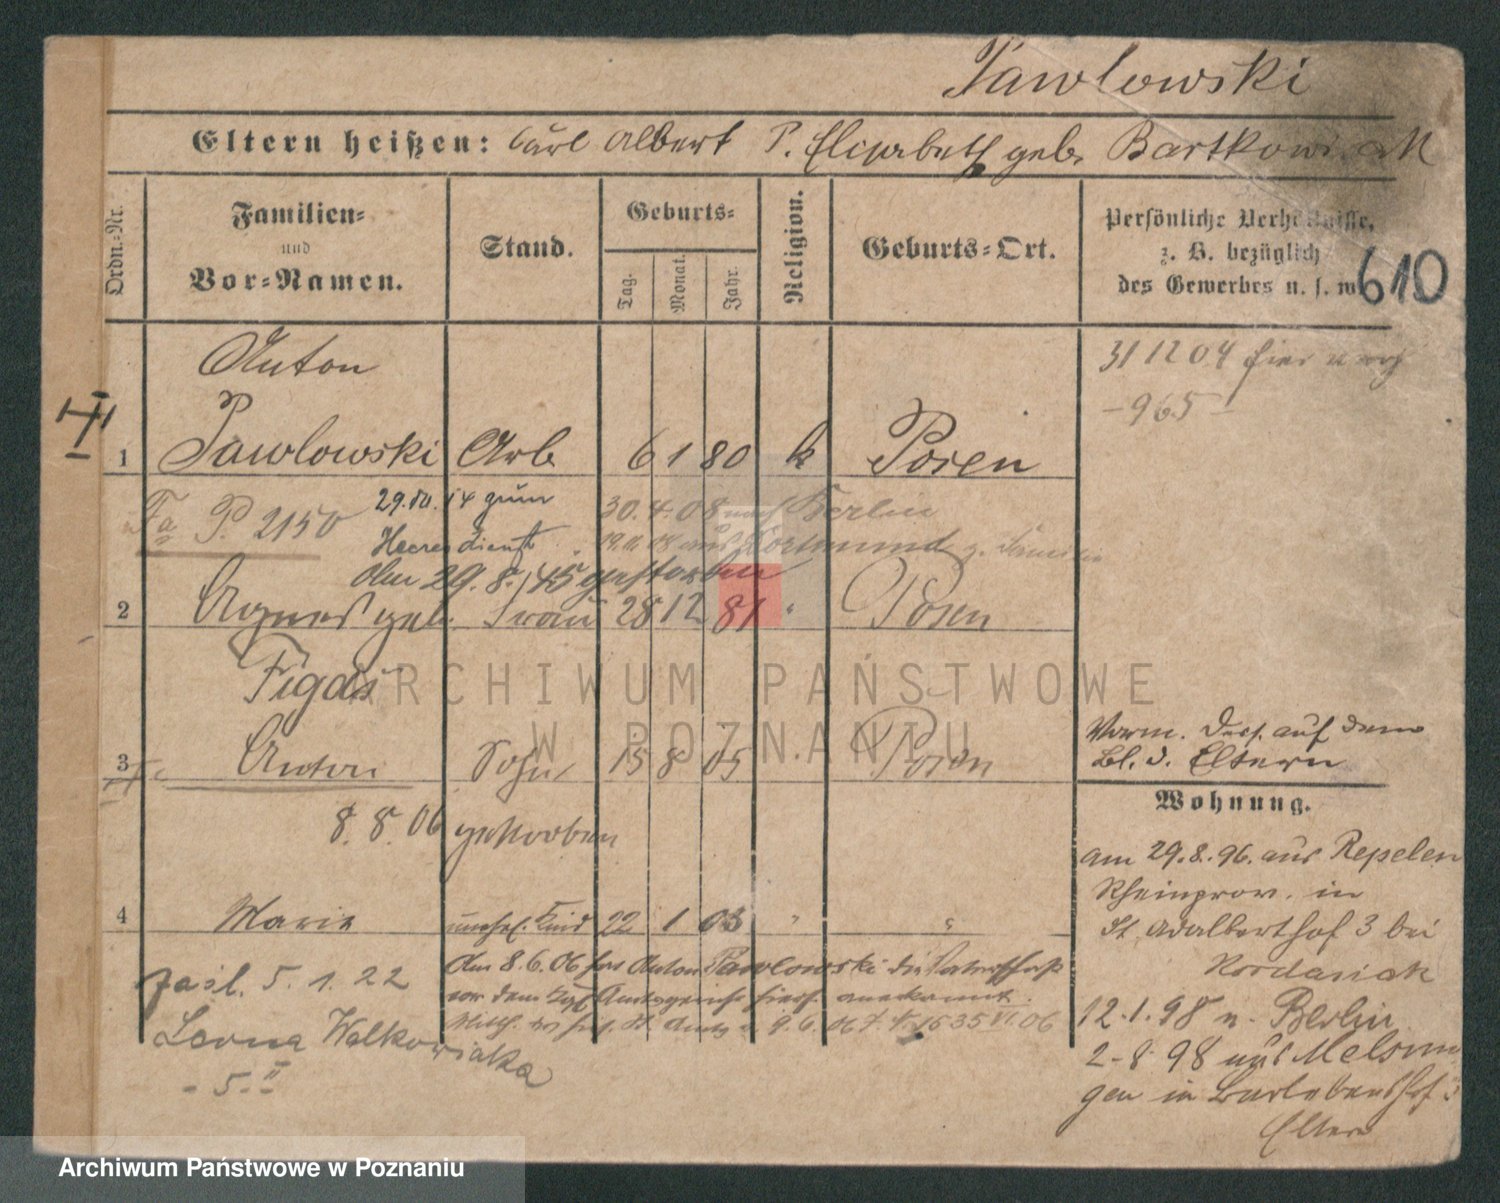 Pawlowski
Eltern heißen: Carl Albert P. Elisabeth geb. Bartkowiak
Ordn.-Nr.
Familien-
und
Vor-Namen.
Stand.
Geburts-
Tag.
Monat.
Jahr.
Religion.
Geburts-Ort.
Persönliche Verhältnisse,
z. B. bezüglich
des Gewerbes u. s. w.
610
Anton
31 12 04 hier
- 965 -
1 Pawlowski Arb 6 1 80 k Posen
Fa P. 2150
29.10.14 zum
Heeresdienst
30.4.08 nach Berlin
aus Dortmund z. Familie
Am 29.8.45 gestorben
2 Agnes geb. Frau 28 12 81 " Posen
Figas
ARCHIWUM PAŃSTWOWE
W POZNANIU
3 Anton Sohn 15 8 05 Posen
8.8.06 gestorben
Verm. Dess. auf dem
Bl. d. Eltern
Wohnung.
am 29.8.96. aus Repelen
Rheinprov. in
St Adalberthof 3 bei
4 Marie unehel. Kind 22 1 03 " "
Am 8.6.06 hat Anton Pawlowski die Vaterschaft
vor dem Kgl. Amtsgericht hiers. anerkannt.
zasl. 5. 1. 22
Walkowiaka
- 5. II
12.1.98 n. Berlin
2-8 98 aus Melsun
gen in
Eltern
Archiwum Państwowe w Poznaniu